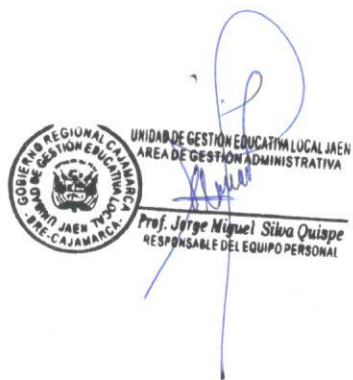 GOBIERNO REGIONAL CAJAMARCA
UNIDAD DE GESTIÓN EDUCATIVA LOCAL
JAEN
DRE-CAJAMARCA
UNIDAD DE GESTIÓN EDUCATIVA LOCAL JAEN
AREA DE GESTIÓN ADMINISTRATIVA
Prof. Jorge Miguel Silva Quispe
RESPONSABLE DEL EQUIPO PERSONAL